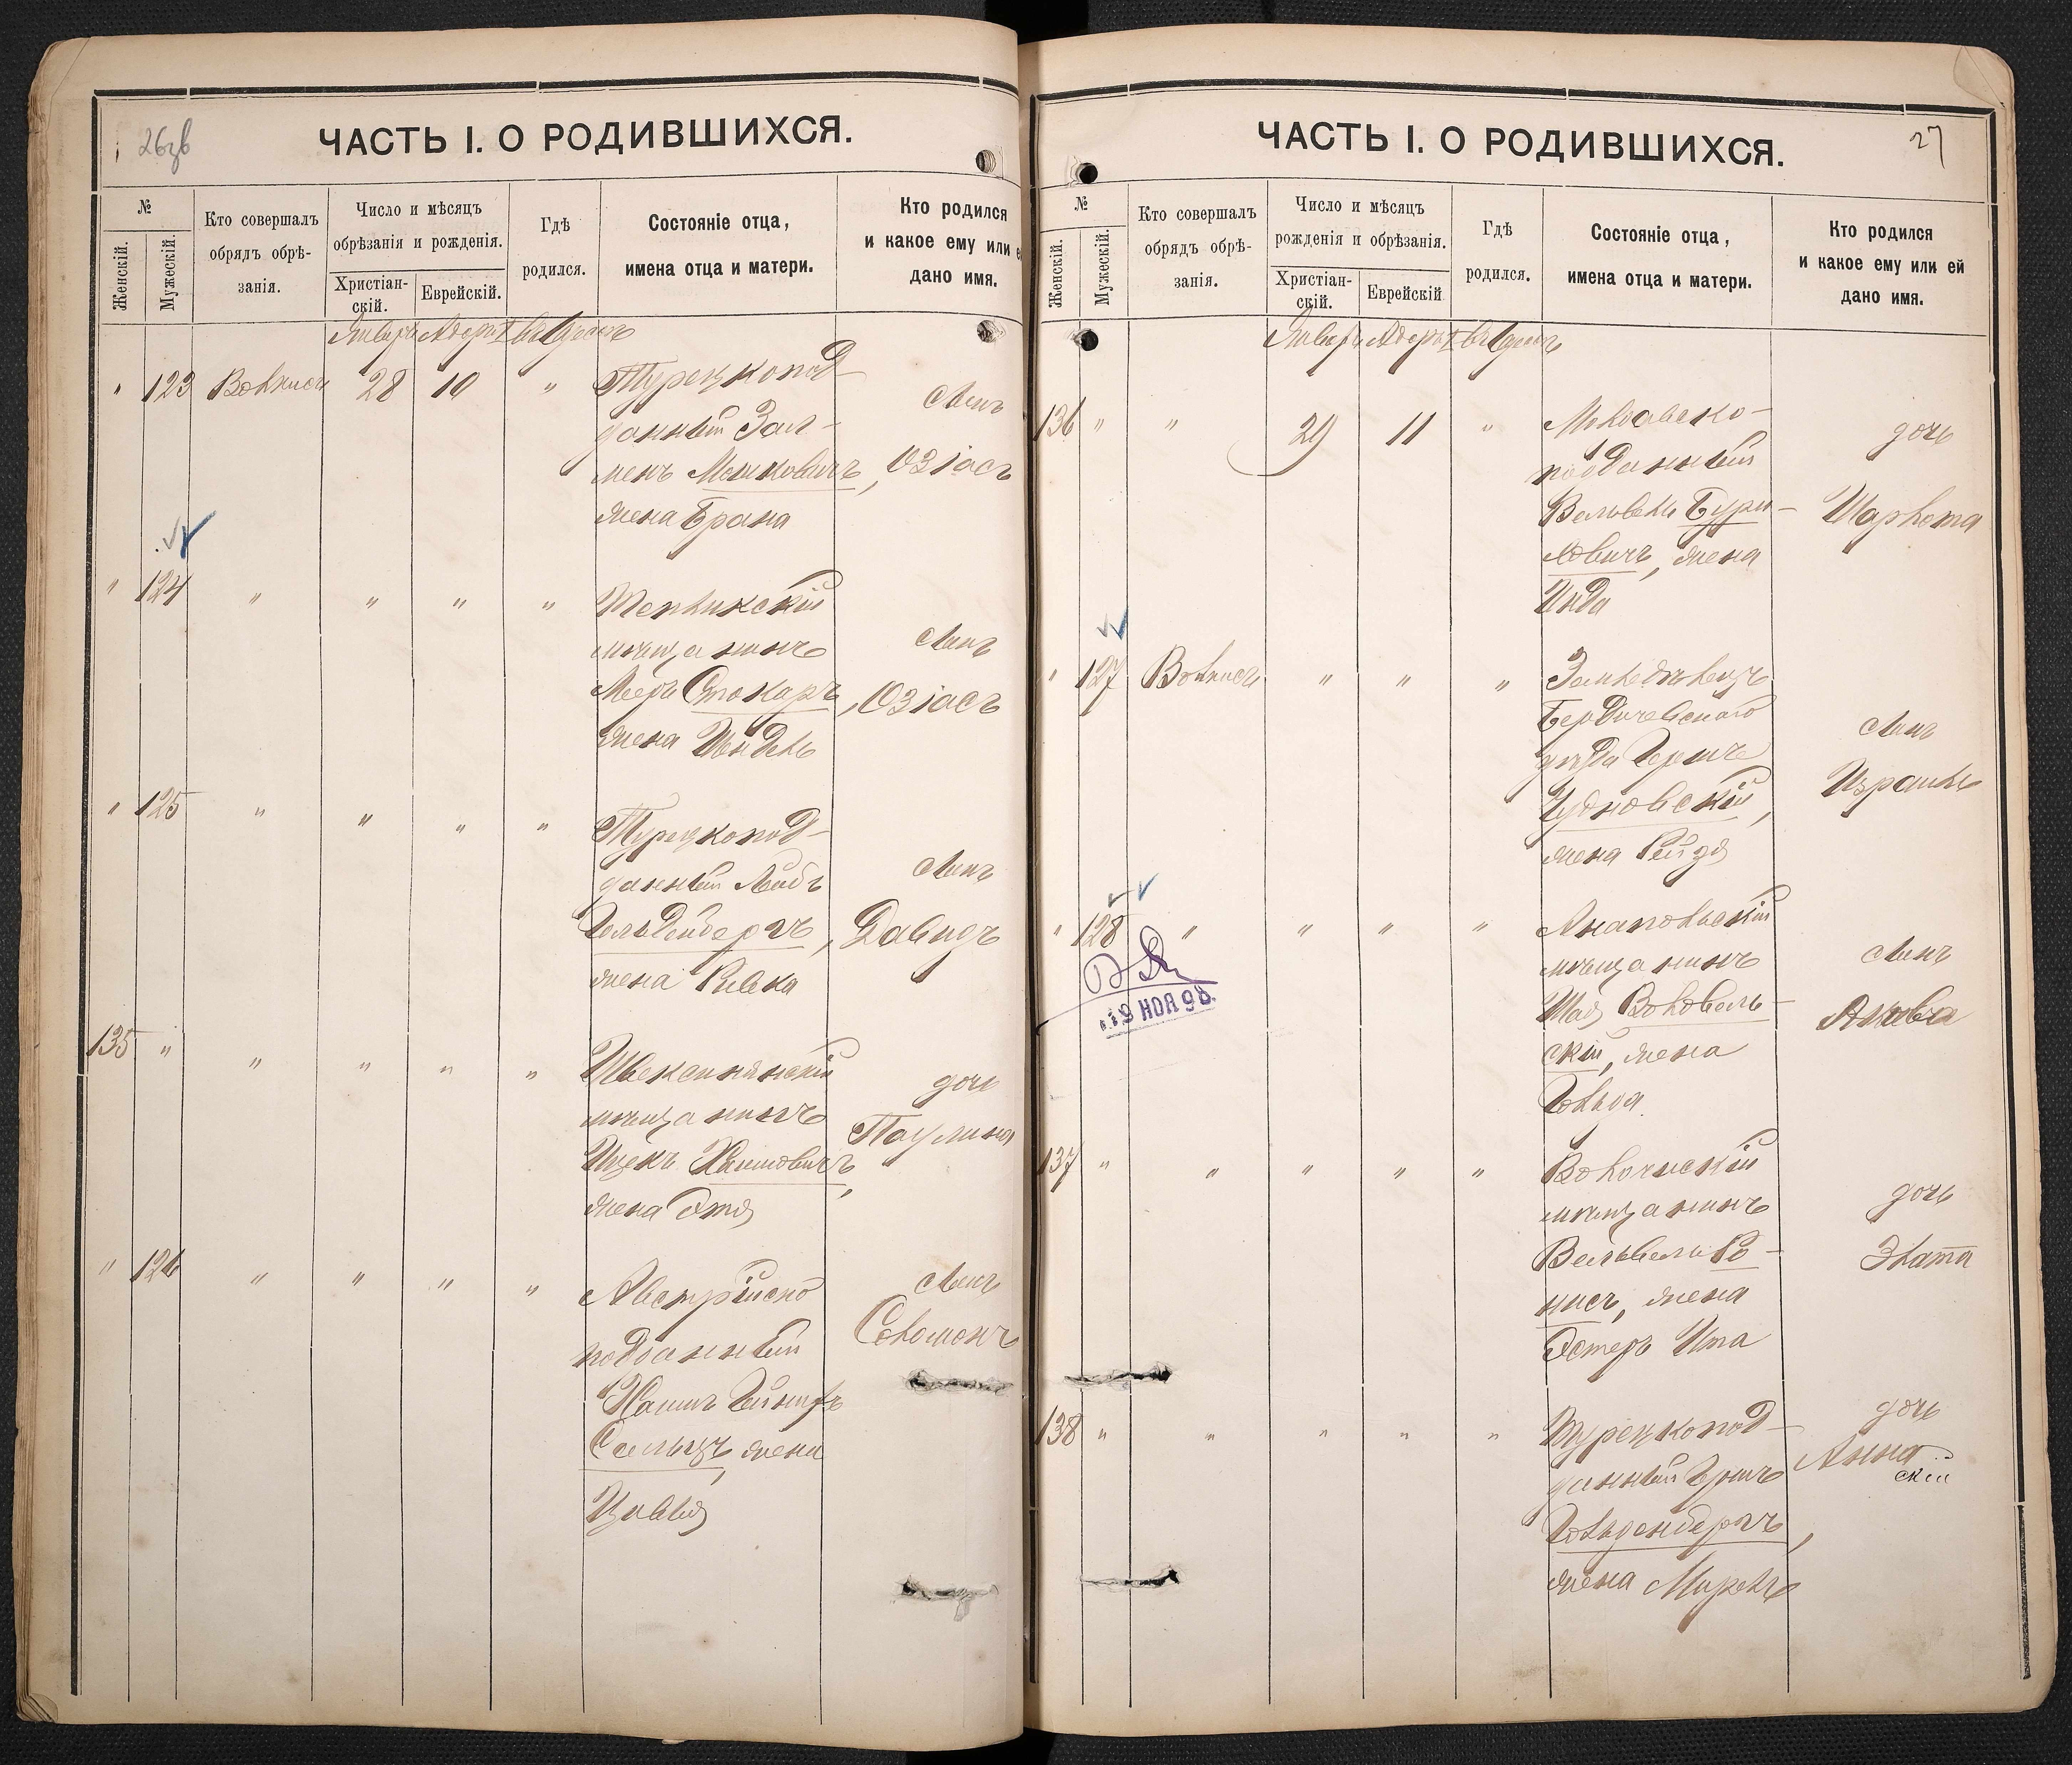 26зв
ЧАСТЬ I. О РОДИВШИХСЯ.
№
Женскій.
Мужескій.
Кто совершалъ
обрядъ обрѣ-
занія.
Число и мѣсяцъ
обрѣзанія и рожденія.
Христіан-
скій.
Еврейскій.
Гдѣ
родился.
Состояніе отца,
имена отца и матери.
Кто родился
и какое ему или
дано имя.
Январь Адаръ I въ Одессѣ
" 123 28 10 " Турецкопод-
данный Зал-
менъ Мошковичъ,
жена Брана
сынъ
Озіасъ
" 124 " " " "
мѣщанинъ
Мееръ Стокаръ,
жена Шендель
сынъ
Озіасъ
" 125 " " " " Турецкопод-
данный Лейбъ
Гольденбергъ,
жена Ривка
сынъ
Давидъ
135 " " " " "
мѣщанинъ
Ицекъ
жена Этя
дочь
Паулина
" 126 " " " " Австрійско
подданный
Сельцъ, жена
Цивья
сынъ
Соломонъ
27
ЧАСТЬ I. О РОДИВШИХСЯ.
№
Женскій.
Мужескій.
Кто совершалъ
обрядъ обрѣ-
занія.
Число и мѣсяцъ
рожденія и обрѣзанія.
Христіан-
скій.
Еврейскій
Гдѣ
родился.
Состояніе отца,
имена отца и матери.
Кто родился
и какое ему или ей
дано имя.
Январь Адаръ I въ Одессѣ
136 " " 29 11 "
подданный
жена
Инда
дочь
Шарлота
" 127 " " " Землевладѣлецъ
Бердичевскаго
уѣзда Гершъ
Чудновскій,
жена Рейзя
сынъ
Израиль
" 128 " " " " Анапольскій
мѣщанинъ
Шая
скій, жена
Гольда
сынъ
Акива
19 НОЯ 98.
137 " " " " " Волочискій
мѣщанинъ
Вельвель Ро-
нисъ, жена
Эстеръ Ита
дочь
Злата
138 " " " " " Турецкопод-
данный Гершъ
Гольденбергъ,
жена Мирель
дочь
Анна
скій